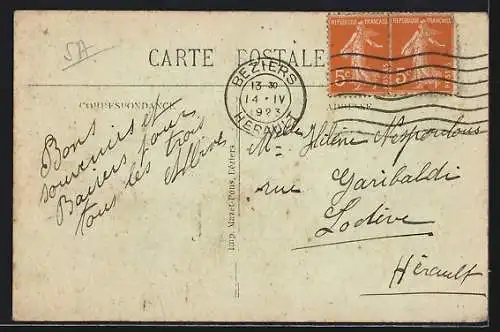 5A
CARTE POSTALE
RÉPUBLIQUE FRANÇAISE
5c
RÉPUBLIQUE FRANÇAISE
5c
BEZIERS
13-30
14-IV
1923
HERAULT
CORRESPONDANCE
ADRESSE
Bons
souvenirs et
Baisers pour
tous les trois
Imp. Mazet-Pons, Béziers
Melle Hélène Nespoulous
rue Garibaldi
Lodève
Hérault